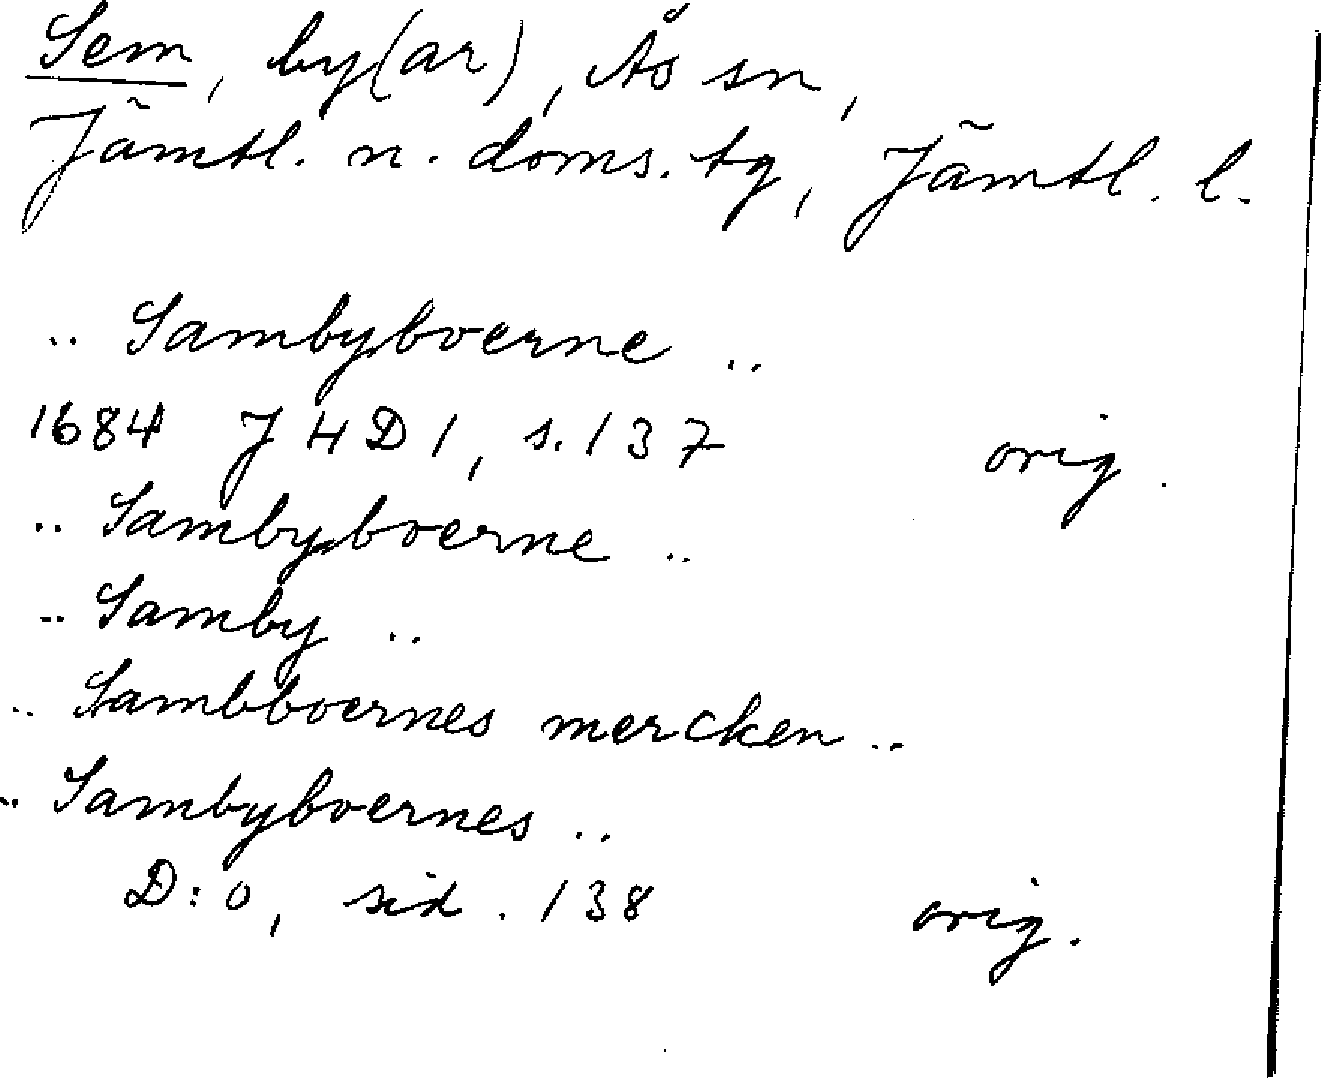 Sem, by(ar), Ås sn,
Jämtl. n. doms. tg, Jämtl. l.
.. Sambyboerne ..
1684 J 4 D 1, s. 137 orig.
.. Sambyboerne ..
.. Samby ..
.. Sambboernes mercken ..
.. Sambyboernes ..
D:o, sid. 138 orig.